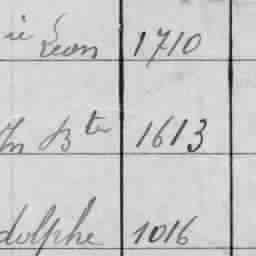 ie Léon 1710
Jn Bte 1613
dolphe 1016